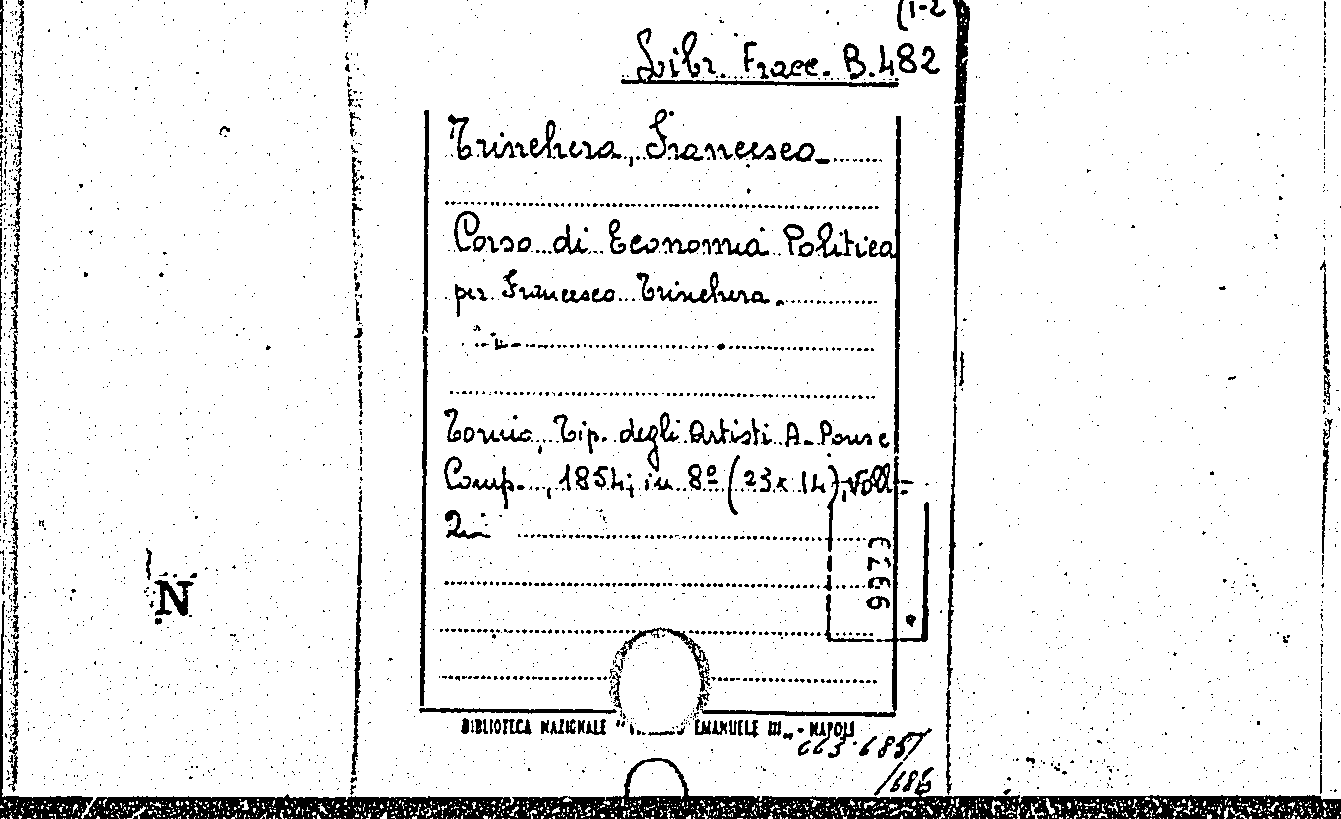 (1-2
Libr. Fracc. B.482
Trinchera, Francesco
Corso di Economia Politica
per Francesco Trinchera.
Torino, Tip. degli Artisti A. Pons e
Comp., 1854; in 8º (23x14), Voll.
2
9973
N
BIBLIOTECA NAZIONALE " EMANUELE III„ - NAPOLI
663.685/
/686